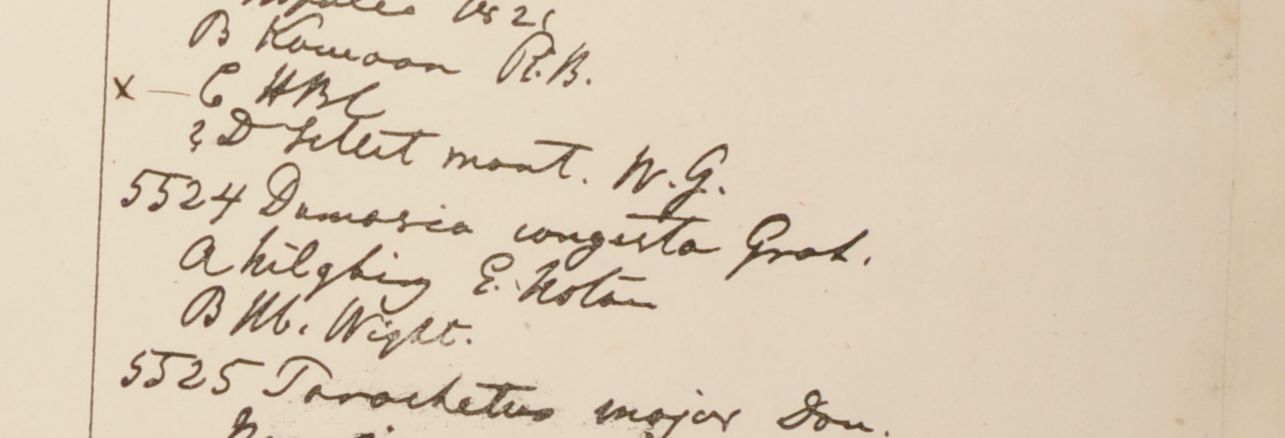 1821
B Kamoon R.B.
x — C HBC
? D Sillet mont. W.G.
5524 Dumasia congesta Grah.
A Nilghiry E. Noton
B Hb. Wight.
5525 Parochetus major Don.